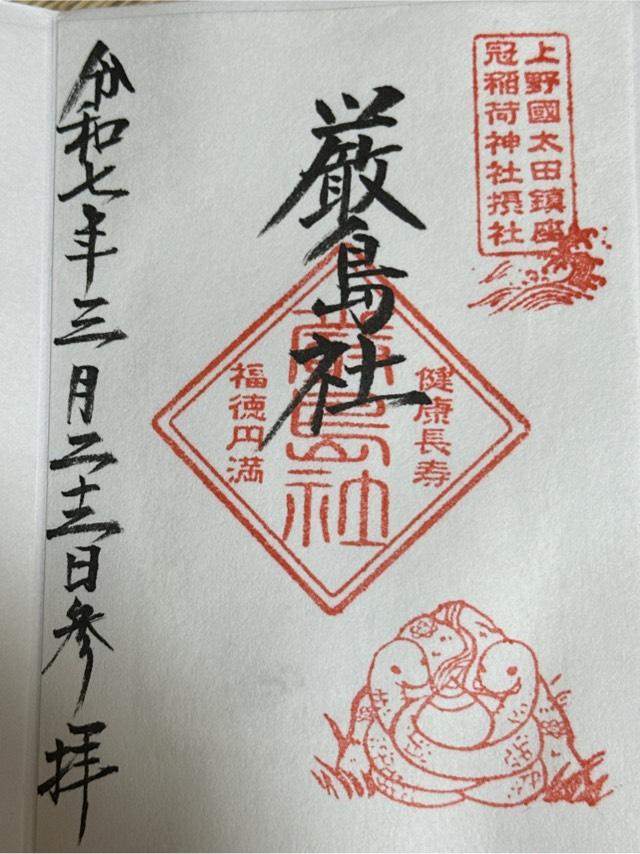 上野國太田鎮座
冠稲荷神社摂社
厳島社
健康長寿
厳島社
福徳円満
令和七年三月二十三日参拝